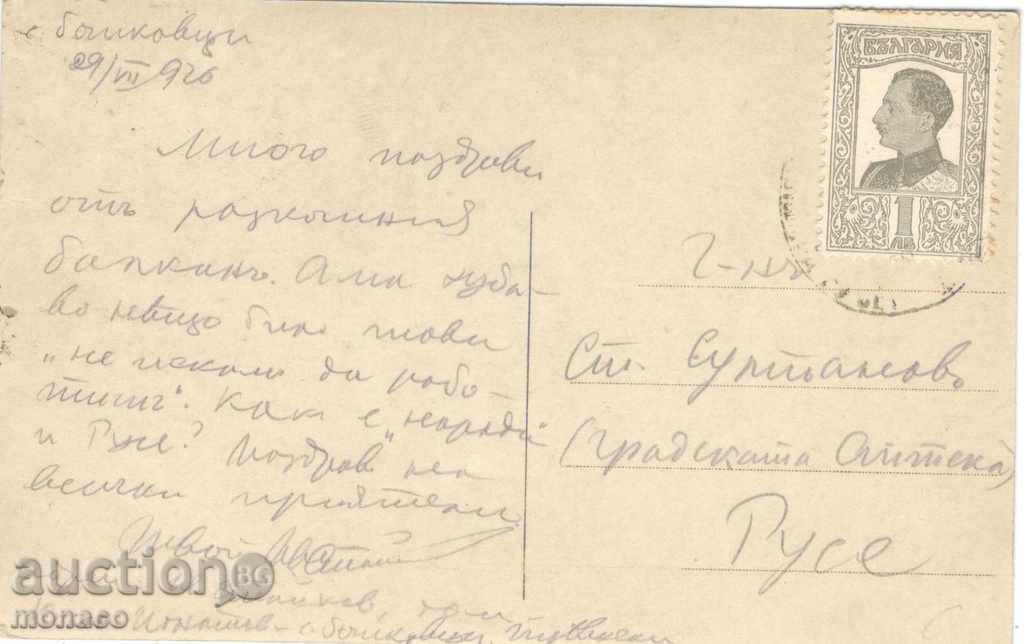 с. Бойковци
29/VII 926
Много поздрави
отъ разкошния
балканъ. Ама хуба-
во нѣщо било това
„не искамъ да рабо-
тимъ“. Как е „народа“
и Русе? Поздрав на
всички приятели.
Твой
с. Бойковци,
БЪЛГАРИЯ
1
ЛВ
Г-нъ
Ст. Султановъ
(Градската Аптека)
Русе
auction BG
monaco